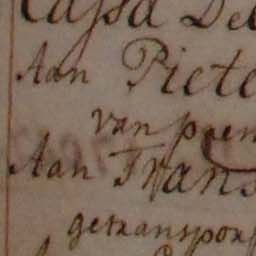 Cassa De
Aan Piete
van prem
Aan Frans
getranspor